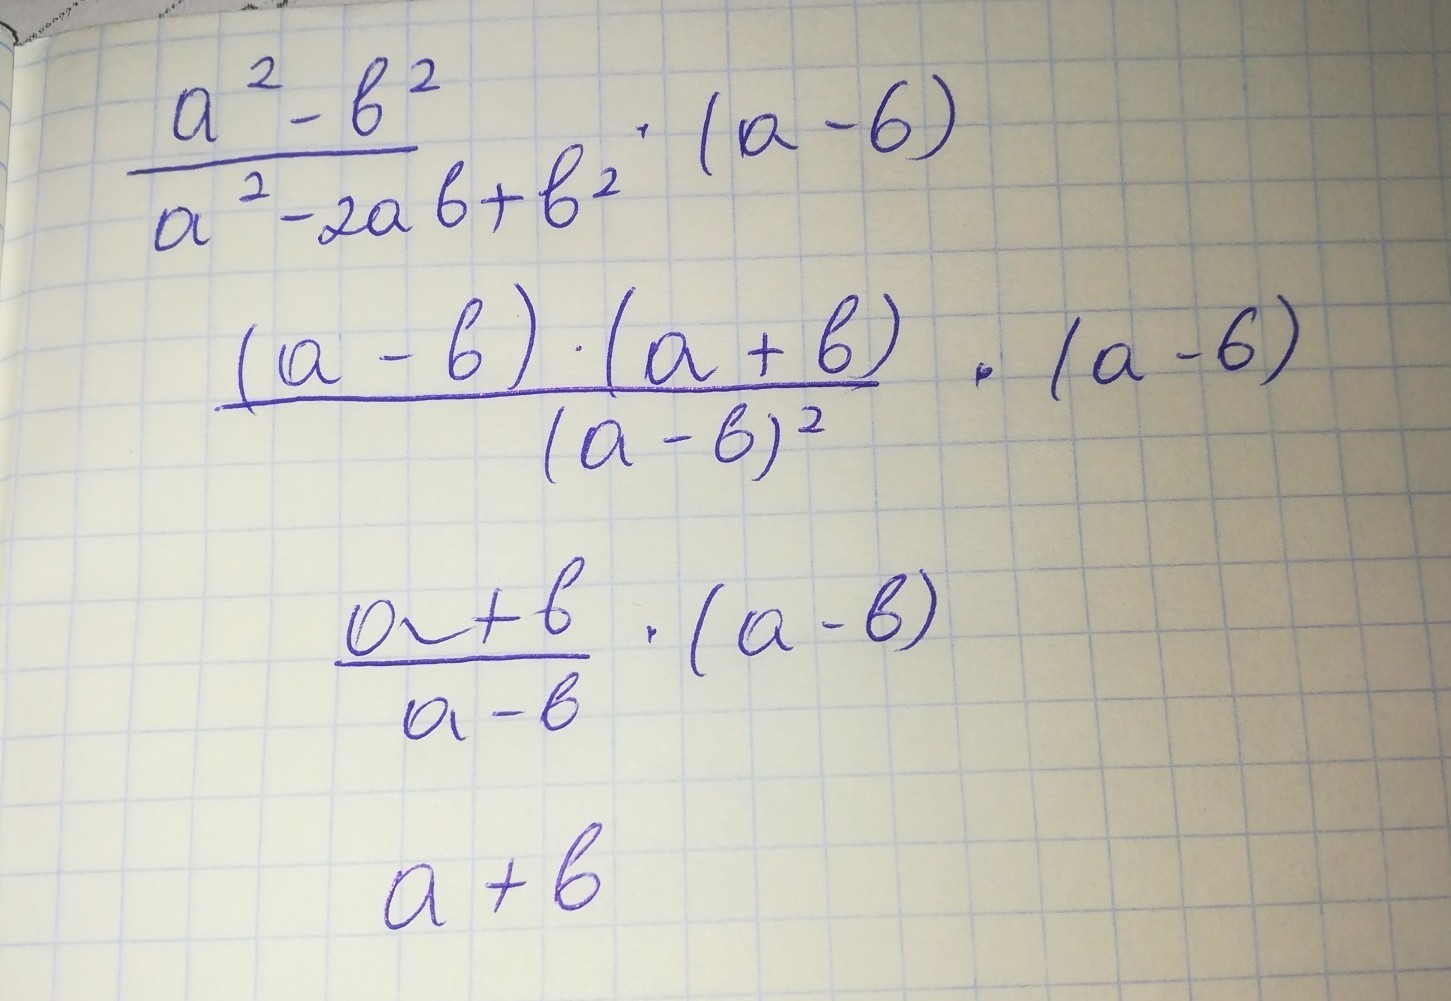 a² - b² / a² - 2ab + b² · (a - b)
(a - b) · (a + b) / (a - b)² · (a - b)
a + b / a - b · (a - b)
a + b